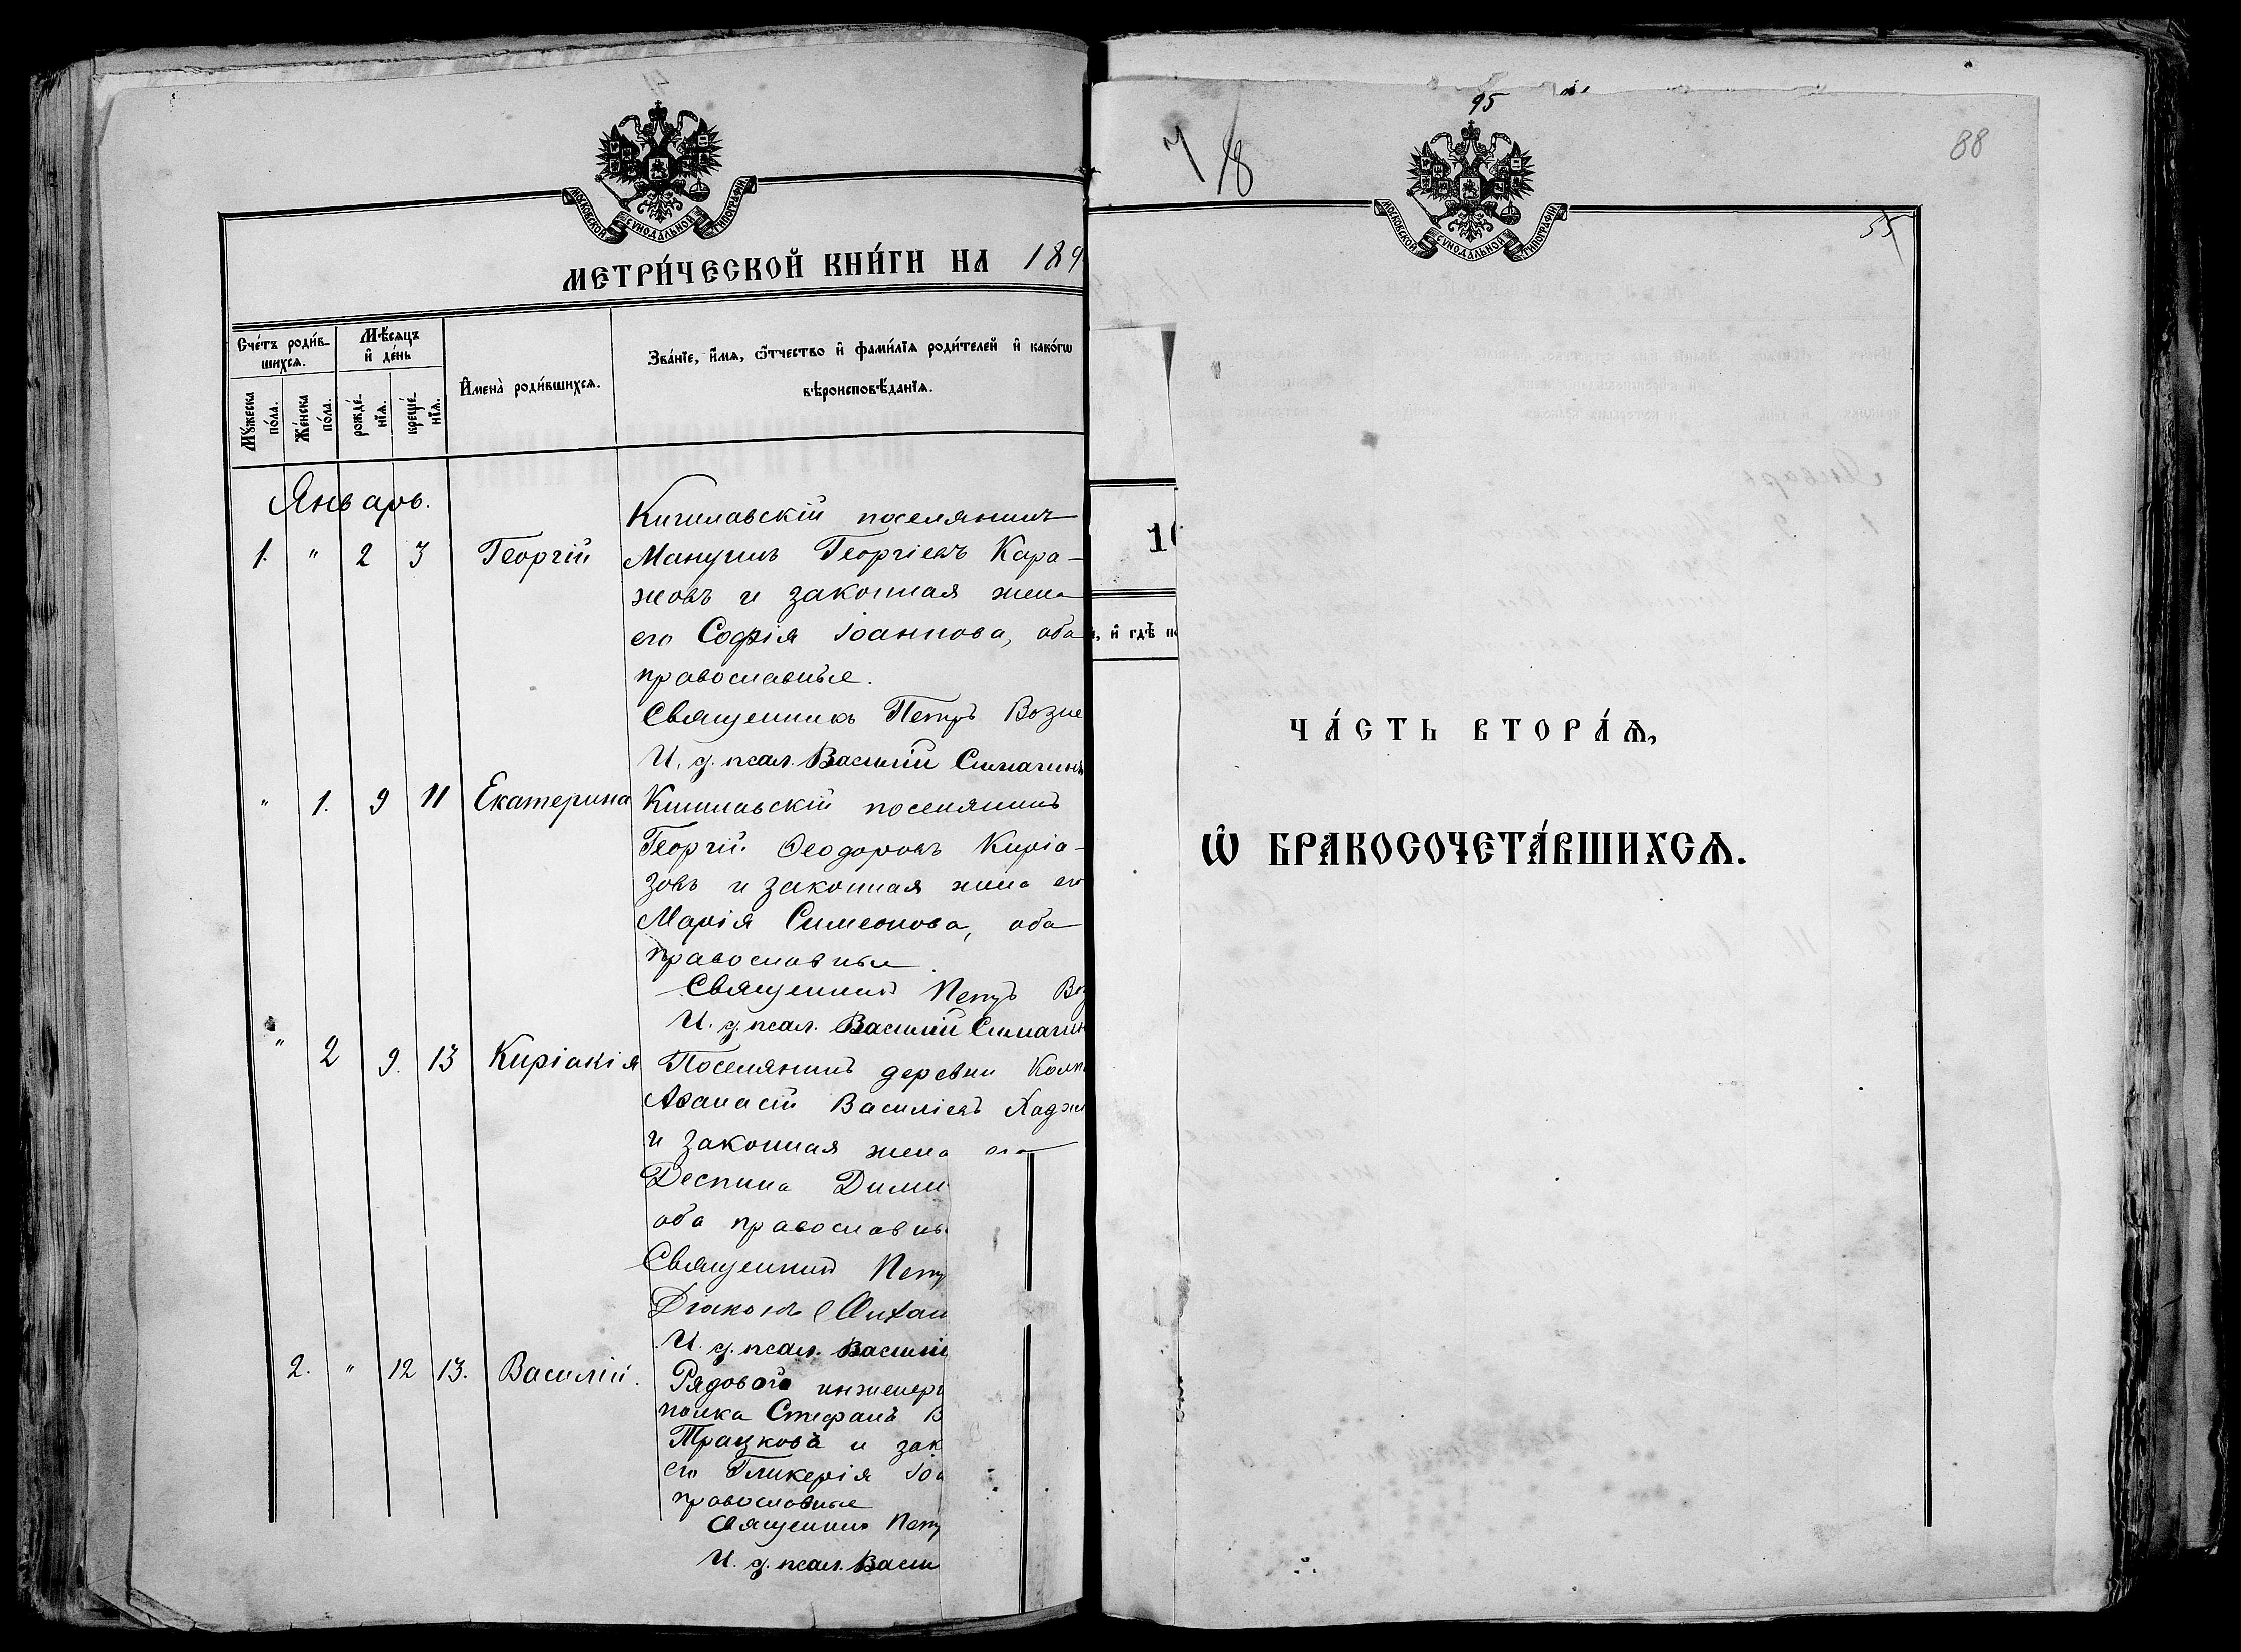 МОСКОВСКОЙ СѴНОДАЛЬНОЙ ТИПОГРАФІИ.
МЕТРИ́ЧЕСКОЙ КНИ́ГИ НА 189
Сче́тъ роди́в-
шихсѧ.
Мѣ́сѧцъ
и҆ де́нь
И҆мена̀ роди́вшихсѧ.
Зва́нїе, и҆́мѧ, ѻ҆́тчество и҆ фами́лїѧ роди́телей и҆ како́гѡ
вѣроисповѣ́данїѧ.
Мꙋ́жеска
по́ла.
Же́нска
по́ла.
рожде́-
нїѧ.
креще́-
нїѧ.
Январь.
1. " 2 3 Георгій
поселянинъ
Георгіевъ Кара-
жовъ и законная жена
его Софія Іоаннова, оба
православные.
Священникъ Петръ Возне
И. д. псал. Василій Симагинъ
" 1. 9 11 Екатерина
поселянинъ
Георгій Ѳеодоровъ Киріа-
зовъ и законная жена его
Марія Симеонова, оба
православные.
Священникъ Петръ Воз
И. д. псал. Василій Симагин
" 2 9. 13 Киріакія
Поселянинъ деревни
Аѳанасій Василіевъ Хаджи
и законная жена его
Деспина Дими
оба православны
Священникъ Петр
Діаконъ
И. д. псал. Василій
2. " 12 13. Василій.
Рядового инженерн
полка Стефанъ В
и зак
его Гликерія Іоа
православные
Священникъ Петр
И. д. псал. Васи
95
7/8
88
55
МОСКОВСКОЙ СѴНОДАЛЬНОЙ ТИПОГРАФІИ.
, и҆ гдѣ̀ п
ЧА́СТЬ ВТОРА́Ѧ,
Ѽ БРАКОСОЧЕТА́ВШИХСѦ.